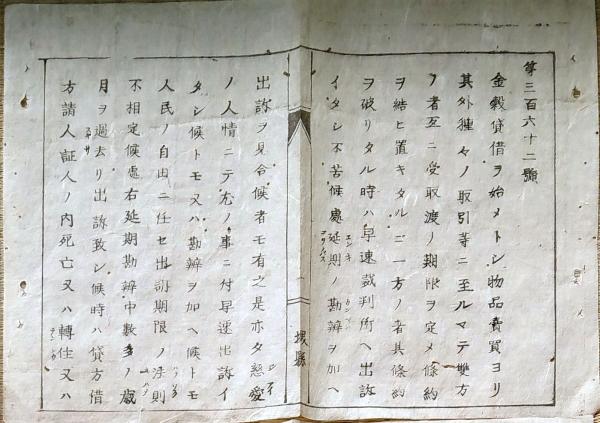 第三百六十二號
金穀貸借ヲ始メトシ物品賣買ヨリ
其外種々ノ取引等ニ至ルマテ雙方
ノ者互ニ受取渡ノ期限ヲ定メ條約
ヲ結ヒ置キタルニ一方ノ者其條約
ヲ破リタル時ハ早速裁判所ヘ出訴
イタシ不苦候處延期ノ勘辨ヲ加ヘ
堺縣
出訴ヲ見合候者モ有之是亦タ慈愛
ノ人情ニテ尤ノ事ニ付早速出訴イ
タシ候トモ又ハ勘辨ヲ加ヘ候トモ
人民ノ自由ニ任セ出訴期限ノ法則
不相定候處右延期勘辨中數多ノ歳
月ヲ過去リ出訴致シ候時ハ貸方借
方請人証人ノ内死亡又ハ轉住又ハ